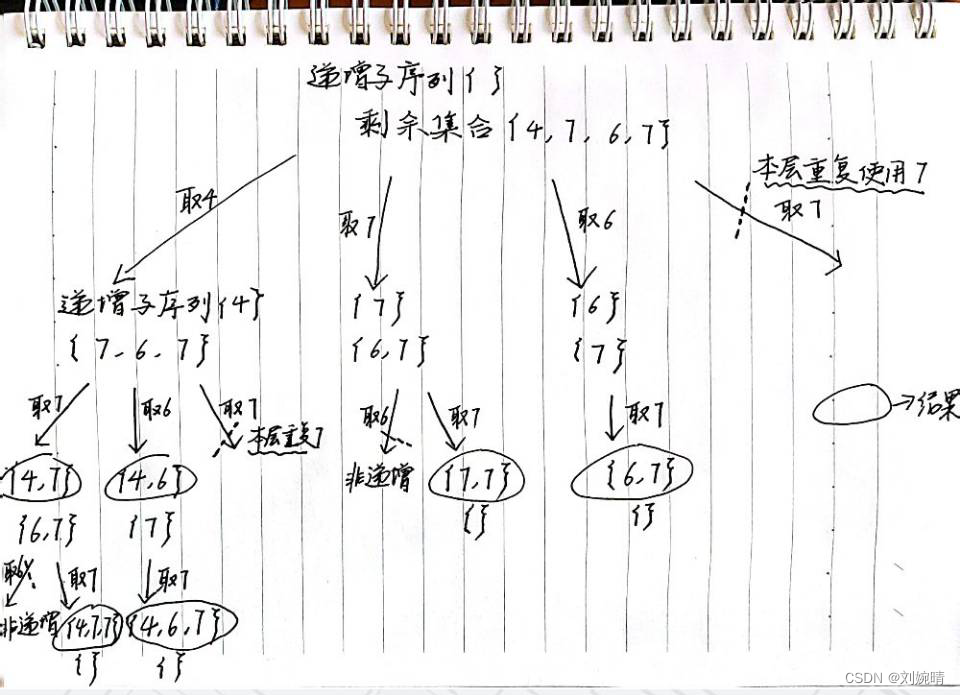 递增子序列{ }
剩余集合{4,7,6,7}
本层重复使用7
取4
取7
取6
取7
递增子序列{4}
{7}
{6}
{7、6、7}
{6,7}
{7}
取7
取6
取7
本层重复7
取6
取7
取7
→结果
{4,7}
{4,6}
非递增
{7,7}
{6,7}
{6,7}
{7}
{}
{}
取6
取7
取7
非递增
{4,7,7}
{4,6,7}
{}
{}
CSDN @刘婉晴